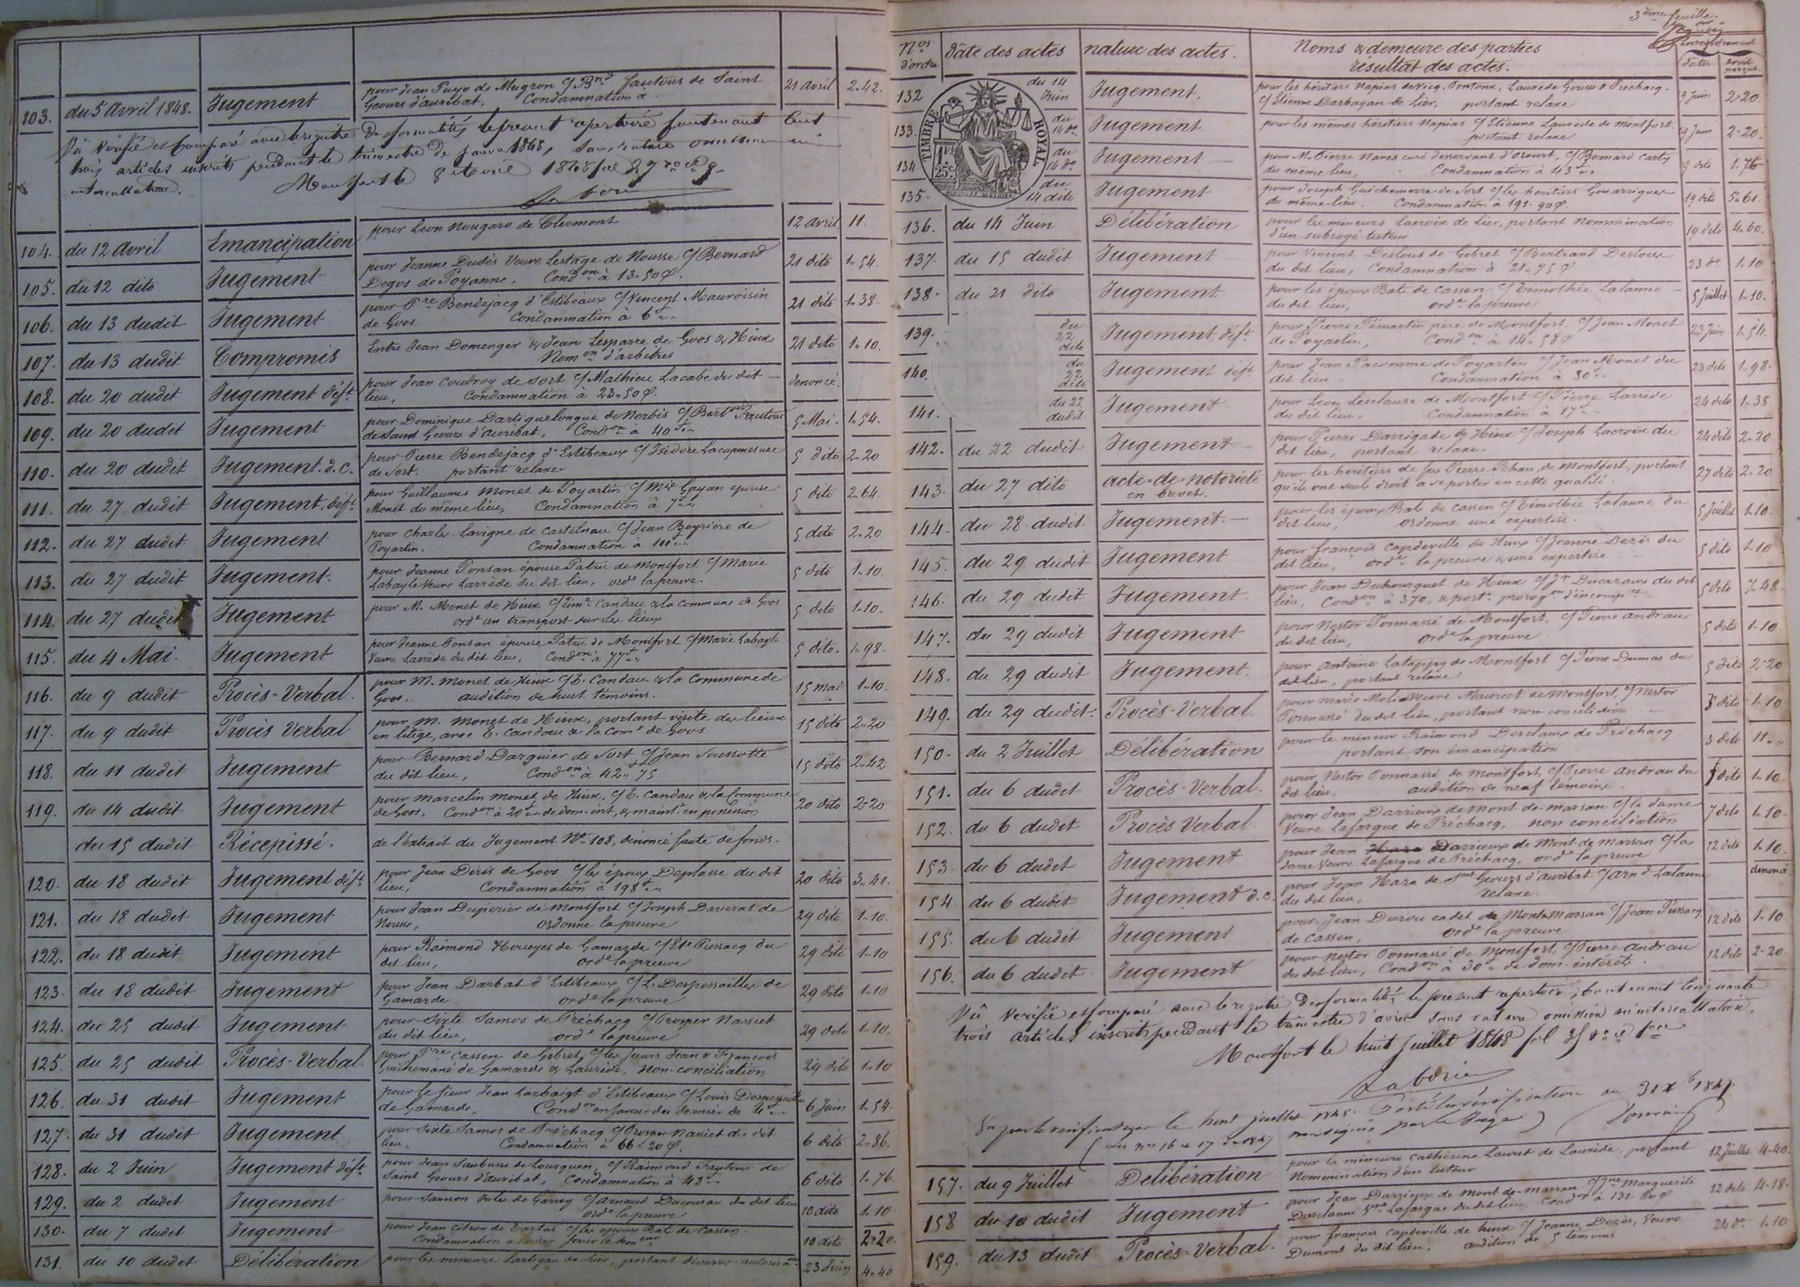 103. du 5 Avril 1848. Jugement pour Jean Puyo de Mugron c/ Bnd fautous de Saint 21 avril 2.42.
Geours d'auribat, Condamnation à
Vu vérifié et comparé avec le registre de formalités le présent repertoire contenant cent
trois articles inscrits pendant le trimestre de janvier 1848, sans rature omission ni
intercallation.
Montfort le 8 avril 1848
104. du 12 Avril Emancipation pour Léon Nougaro de Clermont 12 avril 11.
105. du 12 dito Jugement pour Jeanne Dudès Veuve Lestage de Nousse c/ Bernard 21 dito 1.54.
Degos de Poyanne, Condon à 13.50
106. du 13 dudit Jugement pour Pre Bendejacq d'Estibeaux c/ Vincent Mauvoisin 21 dito 1.38.
de Goos Condamnation à 6
107. du 13 dudit Compromis Entre Jean Domenger & Jean Lesparre de Goos & Hinx 21 dito 1.10.
Nomon d'arbitres
108. du 20 dudit Jugement déft pour Jean Coudroy de Sort c/ Mathieu Lacabe du dit dénoncé.
lieu, Condamnation à 23.50
109. du 20 dudit Jugement pour Dominique Dartiguelongue de Nerbis c/ fautous 5 Mai. 1.54.
de Saint Geours d'Auribat, Condon à 40
110. du 20 dudit Jugement d.c. pour Pierre Bendejacq d'Estibeaux c/ Isidore 5 dito 2.20
de Sort. portant relaxe
111. du 27 dudit Jugement déft pour Guillaume Monet de Poyartin c/ Mie Gayan épouse 5 dito 2.64.
Monet du même lieu, Condamnation à 7
112. du 27 dudit Jugement pour Charles Lavigne de Castelnau c/ Jean Beyrière de 5 dito 2.20.
Poyartin. Condamnation à 100
113. du 27 dudit Jugement. pour Jeanne Ponsan épouse Patru de Montfort c/ Marie 5 dito 1.10.
Labayle Veuve Larrède du dit lieu, orde la preuve
114. du 27 dudit Jugement pour M. Monet de Hinx c/ Candau & la commune de Goos 5 dito 1.10.
orde un transport sur les lieux
115. du 4 Mai. Jugement pour Jeanne Ponsan épouse Patru de Montfort c/ Marie Labayle 5 dito. 1.98.
Veuve Larrède du dit lieu, Condon à 77
116. du 9 dudit Procès-Verbal. pour M. Monet de Hinx c/ E. Candau & la Commune de 15 mai 1.10.
Goos. audition de huit témoins.
117. du 9 dudit Procès Verbal pour M. Monet de Hinx, portant visite des lieux 15 dito 2.20
en litige, avec E. Candau & la Come de Goos
118. du 11 dudit Jugement pour Bernard Darguier de Sort c/ Jean Soussotte 15 dito 2.42
du dit lieu, Condon à 42.75
119. du 14 dudit Jugement pour Marcelin Monet de Hinx, c/ E. Candau & la Commune 20 dito 2.20
de Goos, Condon à 20 de dom. int. & maint. en possession
du 15 dudit Récépissé. de l'extrait du Jugement No 108, dénoncé faute de fonds.
120. du 18 dudit Jugement déft pour Jean Deris de Goos c/ les époux Deplasse du dit 20 dito 3.41.
lieu, Condamnation à 198
121. du 18 dudit Jugement pour Jean Dupérier de Montfort c/ Joseph Daverat de 29 dito 1.10.
Nousse, ordonne la preuve
122. du 18 dudit Jugement pour Raimond Houeyes de Gamarde c/ Pierracq du 29 dito 1.10
dit lieu, orde la preuve
123. du 18 dudit Jugement pour Jean Darbat d'Estibeaux c/ L. Desperseilles de 29 dito 1.10
Gamarde orde la preuve
124. du 25 dudit Jugement pour Sixte Samos de Préchacq c/ Prosper Nassiet 29 dito 1.10.
du dit lieu, orde la preuve
125. du 25 dudit Procès-Verbal. pour Pre Cassen de Gibret, c/ les Jean & François 29 dito 1.10
de Gamarde & Laurède, non conciliation
126. du 31 dudit Jugement pour le sieur Jean Larbaigt d'Estibeaux c/ Louis 6 Juin 1.54.
de Gamarde, Condon en faveur du dernier de 4
127. du 31 dudit Jugement pour Sixte Samos de Préchacq c/ Prosper Nassiet du dit 6 dito 2.86.
lieu. Condamnation à 66.20
128. du 2 Juin Jugement déft pour Jean Saubusse de Lourquen c/ Raimond de 6 dito 1.76.
Saint Geours d'auribat, Condamnation à 43
129. du 2 dudit Jugement pour Samson Jules de Garrey c/ Arnaud Ducournau du dit lieu 10 dito 1.10
orde la preuve
130. du 7 dudit Jugement pour Jean c/ les époux Bat de Cassen 10 dito 2.20.
Condamnation
131. du 10 dudit Délibération pour les mineurs Lartigau de Lier, portant diverses autoris. 23 Juin 4.40
3ème feuille.
Nos d'ordre Date des actes nature des actes. Noms & demeure des parties résultat des actes. Enregistrement dates droit perçus.
TIMBRE ROYAL 1F 25C
132 du 14 Juin Jugement. pour les héritiers Napias de Vicq, Pontonx, Laurède Gousse & Préchacq. Juin 2.20.
c/ Etienne Darbayan de Lier, portant relaxe
133. du 14 do Jugement pour les mêmes héritiers Napias c/ Etienne Laurède de Montfort 19 Juin 2.20.
portant relaxe
134 du 14 do Jugement pour M. Pierre Nares curé desservant d'Ozourt, c/ Bernard 19 dito 1.76
du même lieu, Condamnation à 43
135. du 14 dito Jugement pour Joseph Guichemerre de Sort c/ les héritiers Gouarrigues 19 dito 5.61.
du même lieu. Condamnation à 191.40
136. du 14 Juin Délibération pour les mineurs Lacroix de Lier, portant nommination 19 dito 4.60.
d'un subrogé tuteur
137. du 15 dudit Jugement pour Vincent Deslous de Gibret c/ Bertrand Deslous 23 do 1.10
du dit lieu, Condamnation à 21.75
138. du 21 dito Jugement pour les époux Bat de Cassen c/ Timothée Lalanne 5 Juillet 1.10.
du dit lieu, orde la preuve
139. du 22 dito Jugement déft pour Pierre Pémartin père de Montfort c/ Jean Monet 23 Juin 1.54.
de Poyartin, Condon à 14.58
140. du 22 dito Jugement déft pour Jean Pacomme de Poyartin c/ Jean Monet du 23 dito 1.98.
dit lieu Condamnation à 80
141. du 22 dudit Jugement pour Léon Lesclauze de Montfort c/ Pierre Larrède 24 dito 1.38
du dit lieu. Condamnation à 17
142. du 22 dudit Jugement pour Pierre Darrigade de Hinx c/ Joseph Lacroix du 24 dito 2.20
dit lieu, portant relaxe.
143. du 27 dito acte de notoriété en brevet. pour les héritiers de feu Pierre Tchau de Montfort, portant 27 dito 2.20
qu'ils ont seuls droit à se porter en cette qualité.
144. du 28 dudit Jugement. pour les époux Bat de Cassen c/ Timothée Lalanne du 5 Juillet 1.10.
dit lieu, ordonne une expertise.
145. du 29 dudit Jugement pour françois Capdeville de Hinx c/ Jeanne Dezès du 5 dito 1.10
dit lieu, orde la preuve & une expertise
146. du 29 dudit Jugement pour Jean Dubourguet de Hinx c/ Ducazaux du dit 5 dito 7.48.
lieu, Condon à 370.
147. du 29 dudit Jugement pour Nestor Ponnassé de Montfort, c/ Pierre Andrau 5 dito 1.10
du dit lieu, orde la preuve
148. du 29 dudit Jugement. pour Antoine Latappy de Montfort c/ Pierre Dumas du 5 dito 2.20
dit lieu, portant relaxe
149. du 29 dudit. Procès-Verbal. pour Marie Molia Veuve Mauriet de Montfort, c/ Nestor 5 dito 1.10
Ponnassé du dit lieu, portant non conciliation
150. du 2 Juillet Délibération pour le mineur Raimond Desclaux de Préchacq 3 dito 11
portant son émancipation
151. du 6 dudit Procès-Verbal. pour Nestor Ponnassé de Montfort, c/ Pierre Andrau du dito 1.10.
dit lieu. audition de neuf témoins.
152. du 6 dudit Procès Verbal. pour Jean Darrieux de Mont de marsan c/ la dame 7 dito 1.10.
Veuve Lafargue de Préchacq, non conciliation
153. du 6 dudit Jugement pour Jean Darrieux de Mont de Marsan c/ la 12 dito 1.10.
dame Veuve Lafargue de Préchacq, orde la preuve
154. du 6 dudit Jugement d.c. pour Jean Hara de St Geours d'auribat c/ Arnd Lalanne dénoncé
du dit lieu, relaxe.
155. du 6 dudit Jugement pour Jean Durou cadet de Mont de Marsan c/ Jean Pierracq 12 dito 1.10.
de Cassen, orde la preuve
156. du 6 dudit Jugement pour Nestor Ponnassé de Montfort, c/ Pierre Andrau 12 dito 2.20
du dit lieu, Condon à 30 de dom. intérêts.
Vu vérifié et comparé avec le registre des formalités le présent repertoire, contenant cinquante
trois articles inscrits pendant le trimestre d'avril sans rature omission ni intercallation.
Montfort le huit juillet 1848
Laborie
Vu par le vérificateur le huit juillet 1848.
157. du 9 Juillet Délibération pour la mineure Catherine Lauret de Laurède, portant 12 Juillet 4.40.
Nommination d'un tuteur
158 du 10 dudit Jugement pour Jean Darrieux de Mont-de-marsan c/ marguerite 12 dito 4.18.
Darclanne Vve Lafargue du dit lieu Condon à 132.80
159. du 13 dudit Procès-Verbal. pour françois Capdeville de hinx c/ Jeanne Dezès, Veuve 24 do. 1.10
Dumont du dit lieu. audition de 5 témoins